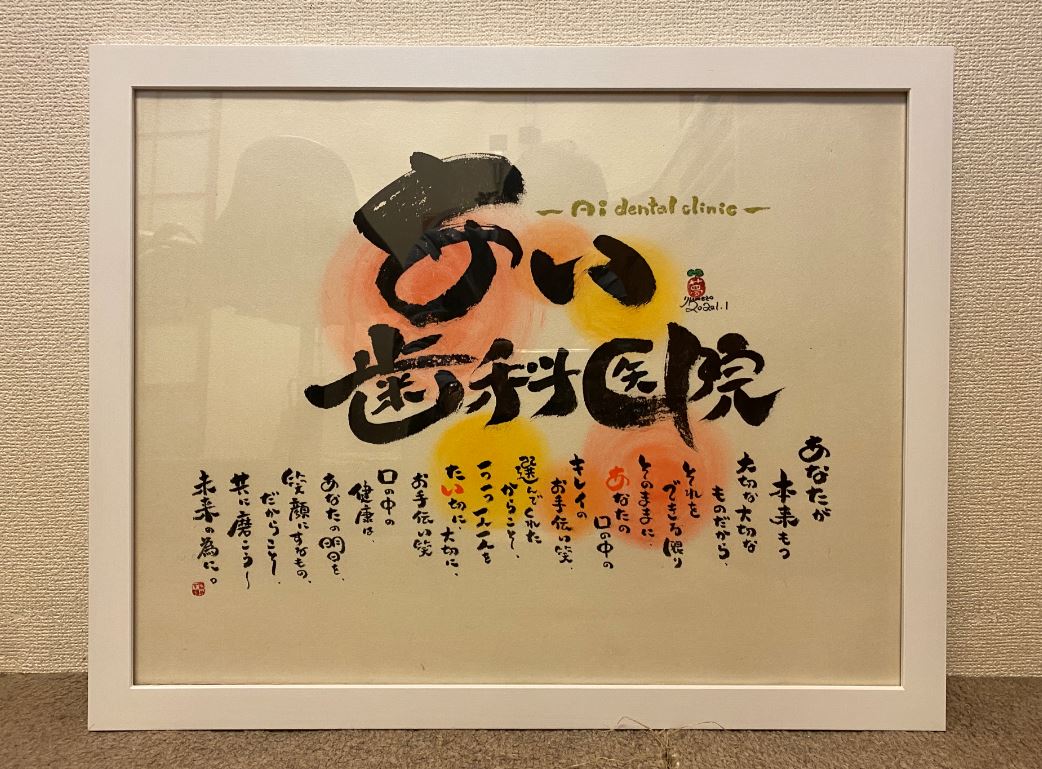 あい
- Ai dental clinic -
夢
2021.1
歯科医院
あなたが
本来もつ
大切な大切な
ものだから、
それを
できる限り
そのままに。
あなたの
口の中の
キレイの
お手伝い笑。
選んでくれた
からこそし、
一つ一つ一人一人を
たい切に、大切に、
お手伝い笑
口の中の
健康は、
あなたの明日を、
笑顔にすなもの、
だからこそし、
共に磨こう〜
未来の為に。